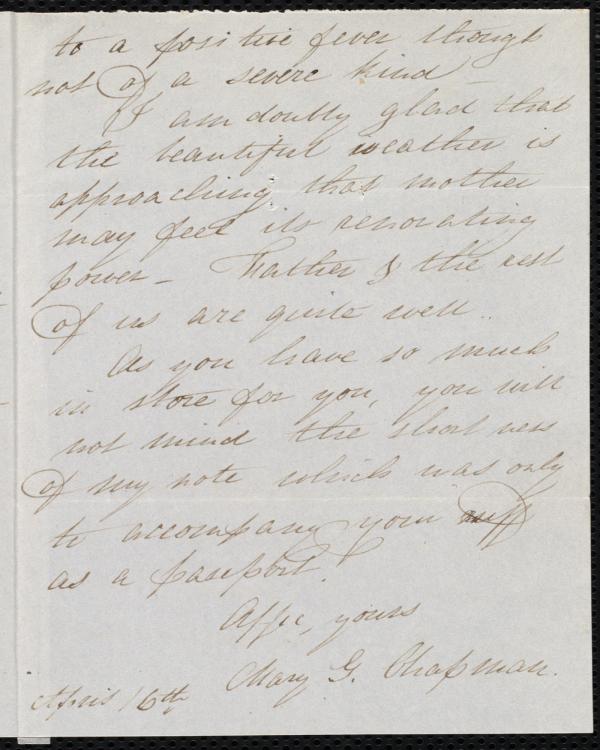 to a positive fever though
not of a severe kind
I am doubly glad that
the beautiful weather is
approaching that mother
may feel its renovating
power - Father & the rest
of us are quite well.
As you have so much
in store for you, you will
not mind the shortness
of my note which was only
to accompany your
as a passport.
Affec, yours
Mary G. Chapman.
April 16th